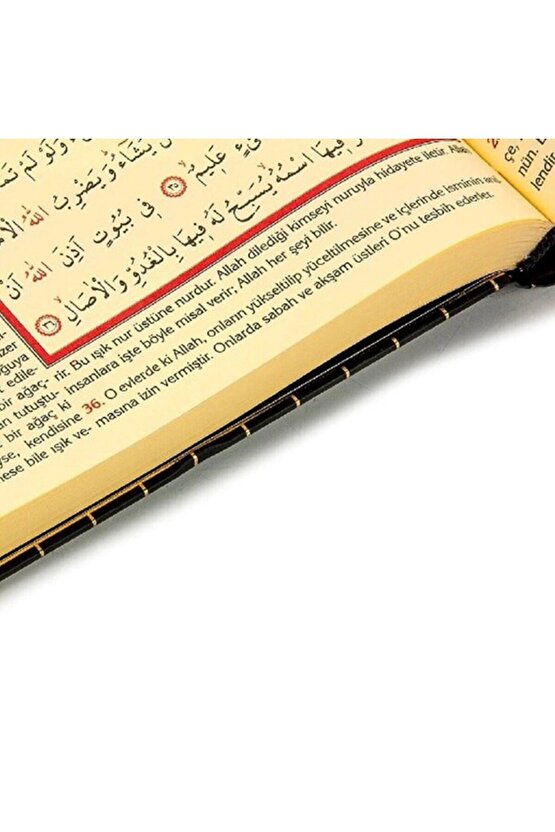 وَلَوْ لَمْ
يَشَٓاءُۜ وَيَضْرِبُ اللّٰهُ
عَل۪يمٌۙ ﴿٣٥﴾ ف۪ي بُيُوتٍ اَذِنَ اللّٰهُ اَنْ
ف۪يهَا اسْمُهُۙ يُسَبِّحُ لَهُ ف۪يهَا بِالْغُدُوِّ وَالْاٰصَالِۙ ﴿٣٦﴾
edile-
bir ağaç-
an tutuştu-
bir ağaç ki
yse, kendisine
mese bile ışık ve-
rir. Bu ışık nur üstüne nurdur. Allah dilediği kimseyi nuruyla hidayete iletir. Allah
insanlara işte böyle misal verir; Allah her şeyi bilir.
36. O evlerde ki Allah, onların yükseltilip yüceltilmesine ve içlerinde isminin
masına izin vermiştir. Onlarda sabah ve akşam üstleri O'nu tesbih ederler.
çe,
nüm.
lendi